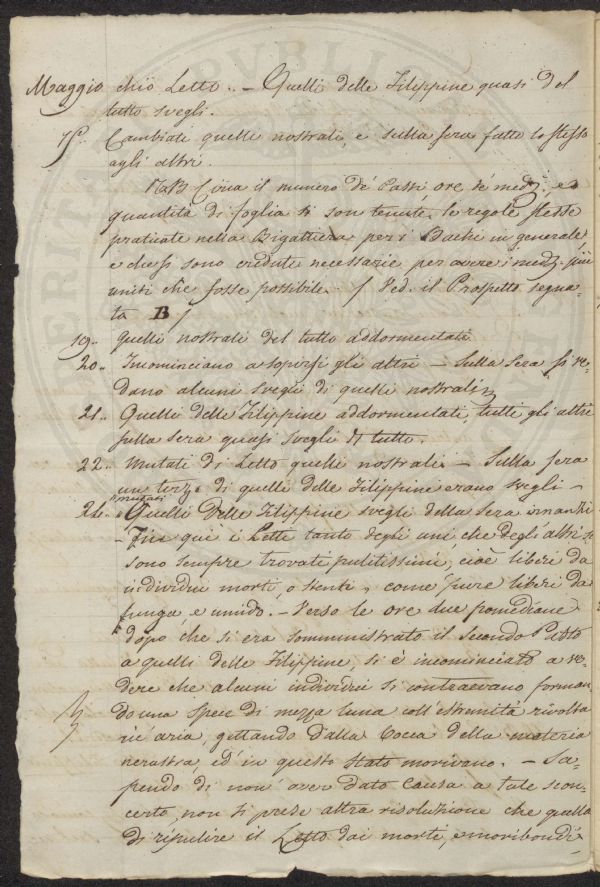 Maggio chio Letto.. – Quelli delle Filippine quasi del
tutto svegli.
Cambiati quelli nostrali, e sulla sera fatto lo stesso
agli altri.
NB Circa il numero de' Pasti, ore de' med.i e
quantità di foglia si son tenute le regole stesse
praticate nella Bigattiera per i Bachi in generale,
e che si sono credute necessarie per avere i med.i più
uniti che fosse possibile. / Ved. il Prospetto segna-
ta B /
19.. Quelli nostrali del tutto addormentati
20.. Incominciano a sopirsi gli altri – Sulla sera si ve-
dano alcuni svegli di quelli nostrali
21.. Quelli delle Filippine addormentati, tutti gli altri
sulla sera quasi svegli di tutto.
22.. Mutati di Letto quelli nostrali. – Sulla sera
un terzo di quelli delle Filippine erano svegli –
mutati
24.. Quelli delle Filippine svegli della sera innanzi
– Fin quì i Letti tanto degli uni, che degl'altri si
sono sempre trovati pulitissimi, cioè liberi da
individui morti, o stenti, come pure liberi da
fungo, e umido. – Verso le ore due pomediane
dopo che si era somministrato il Secondo Pasto
a quelli delle Filippine, si è incominciato a ve-
dere che alcuni individui si contraevano forman-
do una specie di mezza luna coll'estremità rivolta
in aria, gettando dalla bocca della materia
nerastra, ed in questo stato morivano. – Sa-
pendo di non aver dato causa a tale scon-
certo, non si prese altra risoluzione che quella
di ripulire il Letto dai morti, e moribondi